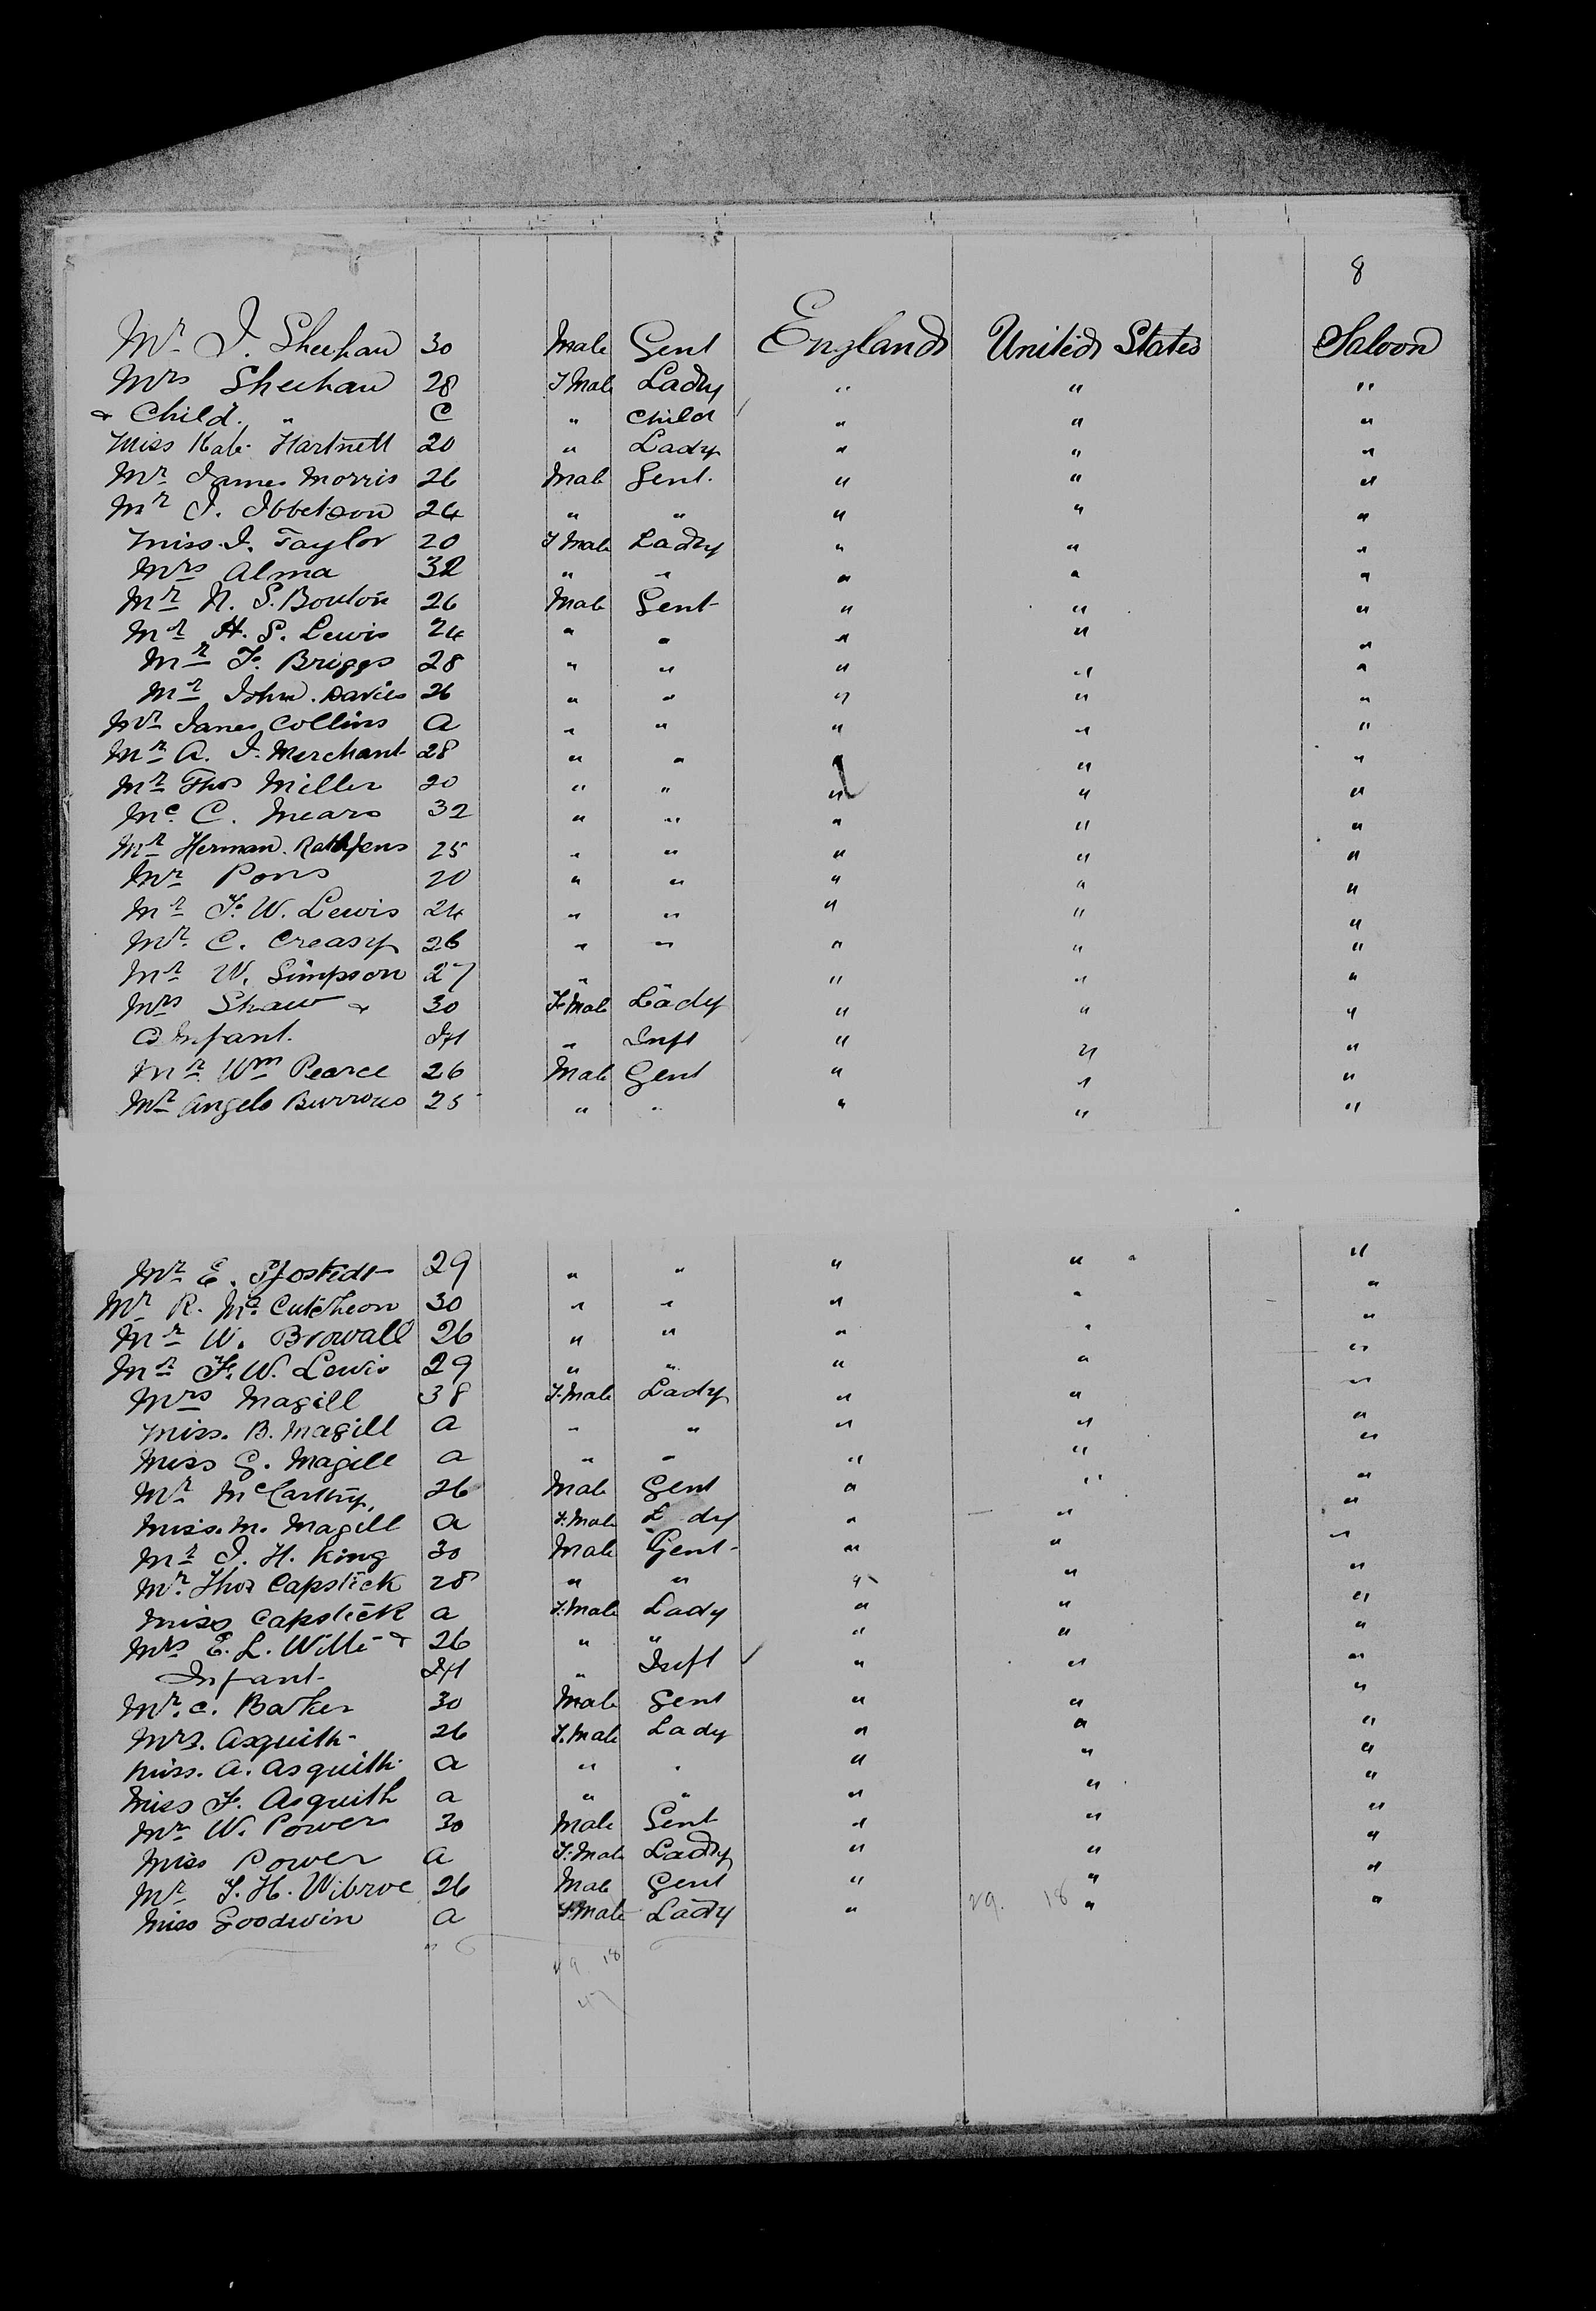 8
Mr J. Sheehan 30 Male Gent England United States Saloon
Mrs Sheehan 28 F Male Lady " " "
& Child. " C " Child " " "
Miss Kate Hartnett 20 " Lady " " "
Mr James Morris 26 Male Gent. " " "
Mr J. Ibbetson 24 " " " " "
Miss J. Taylor 20 F Male Lady " " "
Mrs Alma 32 " " " " "
Mr N. S. Bouton 26 Male Gent " " "
Mr H. S. Lewis 24 " " " " "
Mr F. Briggs 28 " " " " "
Mr John. Davies 26 " " " " "
Mr James Collins a " " " " "
Mr A. J. Merchant 28 " " " " "
Mr Thos Miller 20 " " " " "
Mr C. Mears 32 " " " " "
Mr Herman. 25 " " " " "
Mr Pons 20 " " " " "
Mr F. W. Lewis 24 " " " " "
Mr C. Creasy 26 " " " " "
Mr W. Simpson 27 " " " "
Mrs Shaw & 30 F Male Lady " " "
Infant. Inf " Inft " " "
Mr Wm Pearce 26 Male Gent " " "
Mr Angelo Burrows 25 " " " " "
Mr E. 29 " " " " "
Mr R. Mc. Cutcheon 30 " " " " "
Mr W. Browall 26 " " " " "
Mr F. W. Lewis 29 " " " " "
Mrs Magill 38 F. Male Lady " " "
Miss. B. Magill a " " " " "
Miss G. Magill a " " " " "
Mr McCarthy, 26 Male Gent " " "
Miss. M. Magill a F. Male L dy " " "
Mr J. H. King 30 Male Gent " " "
Mr. Thos Capstick 28 " " " " "
Miss Capstick a F. Male Lady " " "
Mrs E. L. Witte & 26 " " " " "
Infant Inf " Inft " " "
Mr. C. Barker 30 Male Gent " " "
Mrs. Asquith 26 F. Male Lady " " "
Miss. A. Asquith a " " " " "
Miss F. Asquith a " " " " "
Mr W. Power 30 Male Gent " " "
Miss Power a F. Male Lady " " "
Mr F. H. Wibroe 26 Male Gent " " "
Miss Goodwin a F. Male Lady " 29. 18 " "
29 18
47